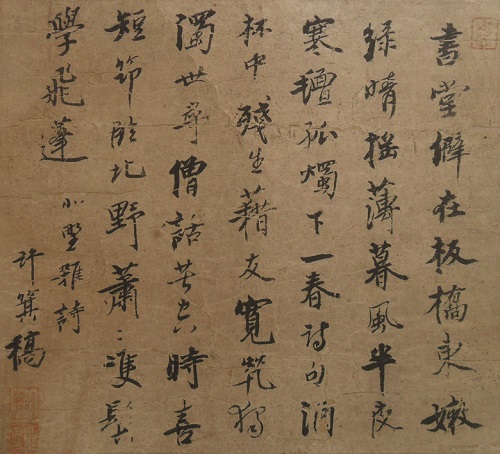 書堂僻在板橋東嫩
綠晴搖薄暮風半夜
寒孤燭下一春詩句酒
杯中殘生藉友寬煢獨
濁世尋僧話苦空時喜
短筇能野蕭〻雙鬂
學飛蓬 雜詩
許稿